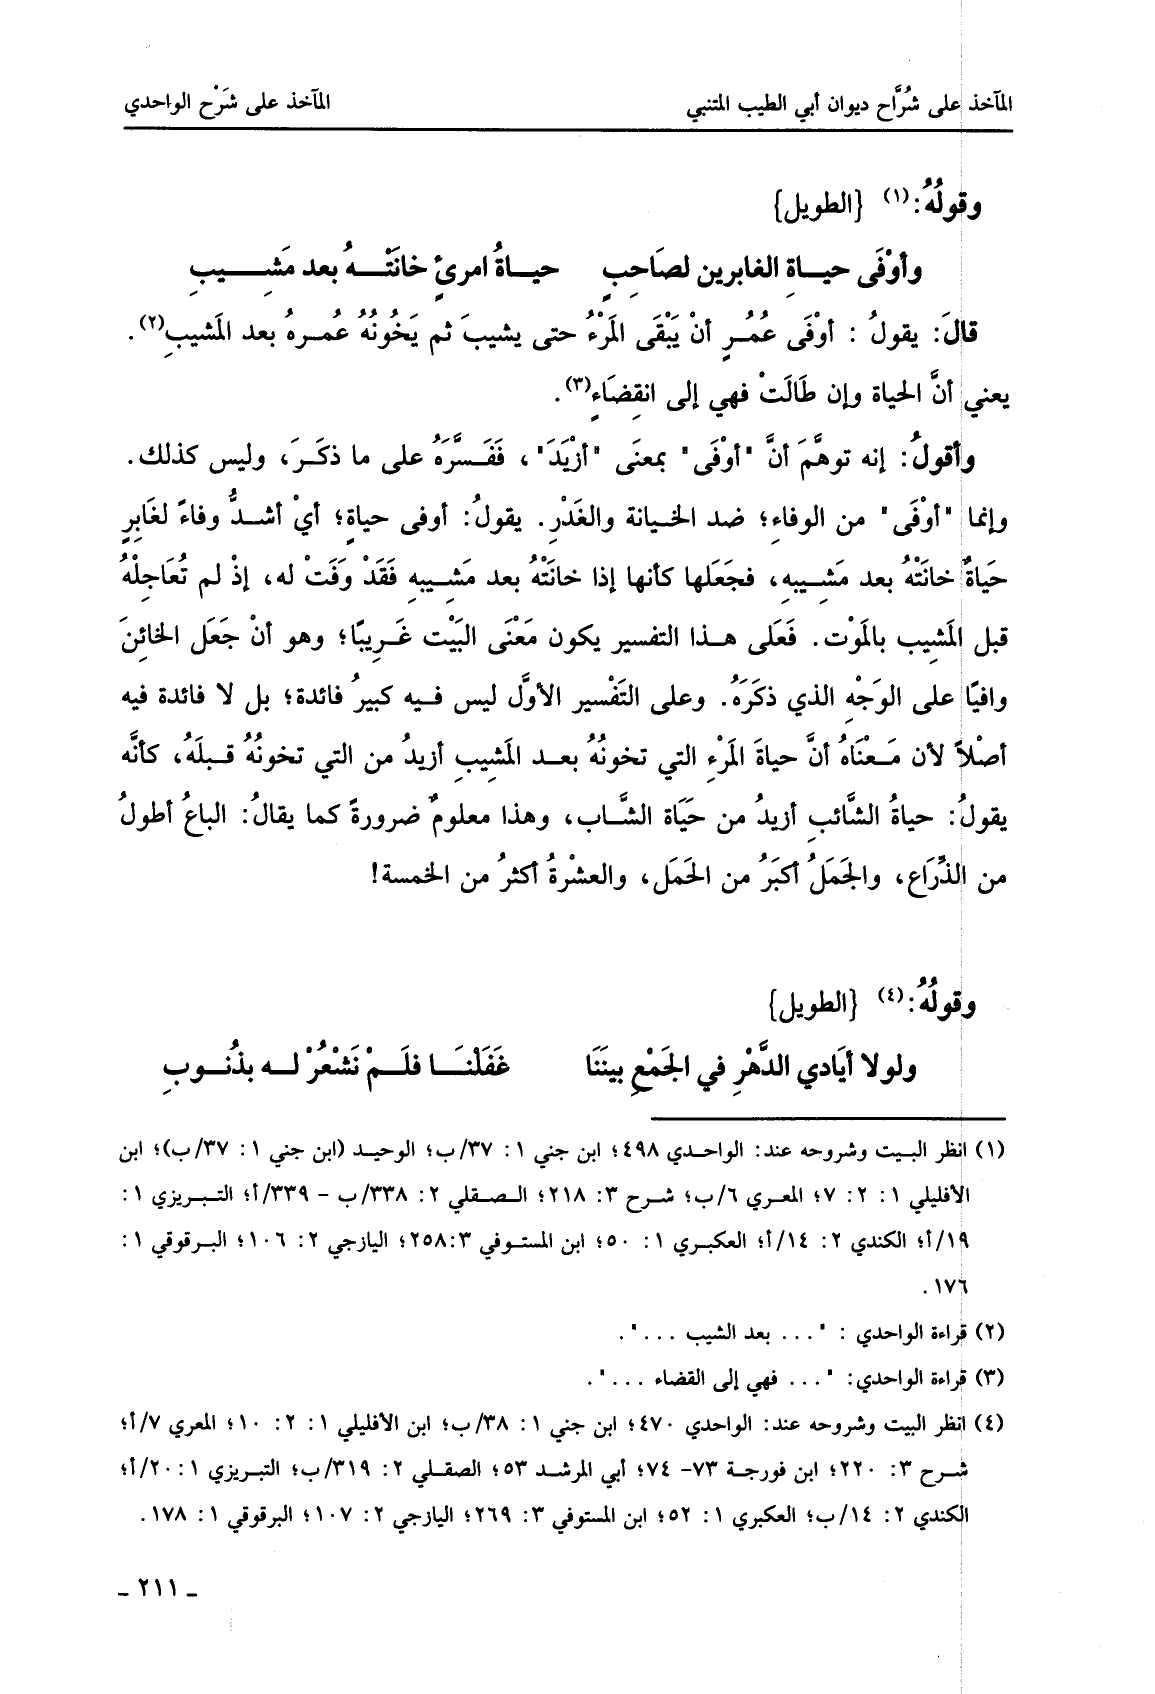 المآخذ على شُرَّاح ديوان أبي الطيب المتنبي المآخذ على شَرْح الواحدي
وقولُهُ:(١) {الطويل}
وأوْفَى حيـاةِ الغابرين لصَاحِبٍ حيـاةُ امرئٍ خانَتْـهُ بعد مَشِـيبِ
قالَ: يقولُ : أوْفَى عُمُـرٍ أنْ يَبْقَى المَرْءُ حتى يشيبَ ثم يَخُونُهُ عُمـرهُ بعد المَشيبِ(٢).
يعني أنَّ الحياة وإن طَالَتْ فهي إلى انقِضَاءٍ(٣).
وأقولُ: إنه توهَّمَ أنَّ "أوْفَى" بمعنَى "أزْيَدَ"، فَفَـسَّرَهُ على ما ذكَـرَ، وليس كذلك.
وإنما "أوْفَى" من الوفاءِ؛ ضد الخـيانة والغَدْرِ. يقولُ: أوفى حياةٍ؛ أيْ أشـدُّ وفاءً لغَابِرٍ
حَياةٌ خانَتْهُ بعد مَشـيبِهِ، فجعَلها كأنها إذا خانَتْهُ بعد مَشـيبِهِ فَقَدْ وَفَتْ له، إذْ لم تُعَاجِلْهُ
قبل المَشِيب بالمَوْت. فَعَلى هـذا التفسير يكون مَعْنَى البَيْت غَـرِيبًا؛ وهو أنْ جَعَل الخائنَ
وافيًا على الوَجْهِ الذي ذكَرَهُ. وعلى التَفْسير الأوَّل ليس فـيه كبيرُ فائدة؛ بل لا فائدة فيه
أصْلاً لأن مَـعْنَاهُ أنَّ حياةَ المَرْءِ التي تخونُهُ بعـد المَشِيبِ أزيدُ من التي تخونُهُ قـبلَهُ، كأنَّه
يقولُ: حياةُ الشَّائبِ أزيدُ من حَيَاة الشَّـاب، وهذا معلومٌ ضرورةً كما يقالُ: الباعُ أطولُ
من الذِّرَاعِ، والجَمَلُ أكبَرُ من الحَمَل، والعشْرةُ أكثرُ من الخمسة!
وقولُهُ:(٤) {الطويل}
ولولا أيَادي الدَّهْرِ في الجَمْعِ بينَنَا غَفَلْنَـا فلَـمْ نَشْعُرْ لـه بذُنُـوبِ
(١) انظر البـيت وشروحه عند: الواحـدي ٤٩٨؛ ابن جني ١: ٣٧/ب؛ الوحيـد (ابن جني ١: ٣٧/ب)؛ ابن
الأفليلي ١: ٢: ٧؛ المعـري ٦/ب؛ شـرح ٣: ٢١٨؛ الـصـقلي ٢: ٣٣٨/ب - ٣٣٩/أ؛ التـبـريزي ١:
١٩/أ؛ الكندي ٢: ١٤/أ؛ العكبـري ١: ٥٠؛ ابن المستـوفي ٢٥٨:٣؛ اليازجي ٢: ١٠٦؛ البـرقوقي ١:
١٧٦.
(٢) قراءة الواحدي : "... بعد الشيب ...".
(٣) قراءة الواحدي: "... فهي إلى القضاء ...".
(٤) انظر البيت وشروحه عند: الواحدي ٤٧٠؛ ابن جني ١: ٣٨/ب؛ ابن الأفليلي ١: ٢: ١٠؛ المعري ٧/أ؛
شـرح ٣: ٢٢٠؛ ابن فورجـة ٧٣- ٧٤؛ أبي المرشـد ٥٣؛ الصقلـي ٢: ٣١٩/ب؛ التبـريزي ١: ٢٠/أ؛
الكندي ٢: ١٤/ب؛ العكبري ١: ٥٢؛ ابن المستوفي ٣: ٢٦٩؛ اليازجي ٢: ١٠٧؛ البرقوقي ١: ١٧٨.
ـ ٢١١ ـ